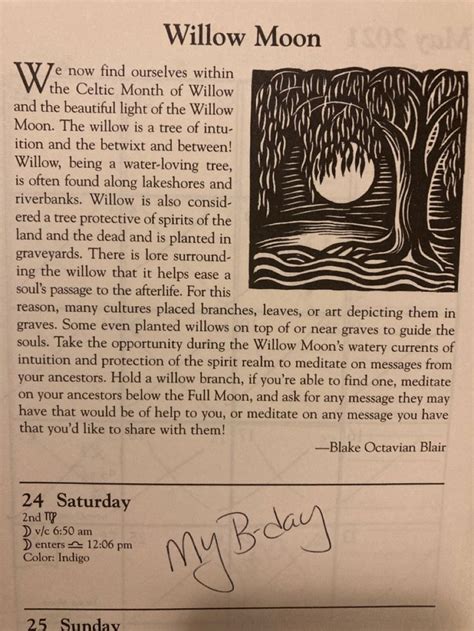 Willow Moon
We now find ourselves within
the Celtic Month of Willow
and the beautiful light of the Willow
Moon. The willow is a tree of intu-
ition and the betwixt and between!
Willow, being a water-loving tree,
is often found along lakeshores and
riverbanks. Willow is also consid-
ered a tree protective of spirits of the
land and the dead and is planted in
graveyards. There is lore surround-
ing the willow that it helps ease a
soul's passage to the afterlife. For this
reason, many cultures placed branches, leaves, or art depicting them in
graves. Some even planted willows on top of or near graves to guide the
souls. Take the opportunity during the Willow Moon's watery currents of
intuition and protection of the spirit realm to meditate on messages from
your ancestors. Hold a willow branch, if you're able to find one, meditate
on your ancestors below the Full Moon, and ask for any message they may
have that would be of help to you, or meditate on any message you have
that you'd like to share with them!
—Blake Octavian Blair
24 Saturday
2nd ♍
☽ v/c 6:50 am
☽ enters ♎ 12:06 pm
Color: Indigo
My B-day
25 Sunday
May 2021